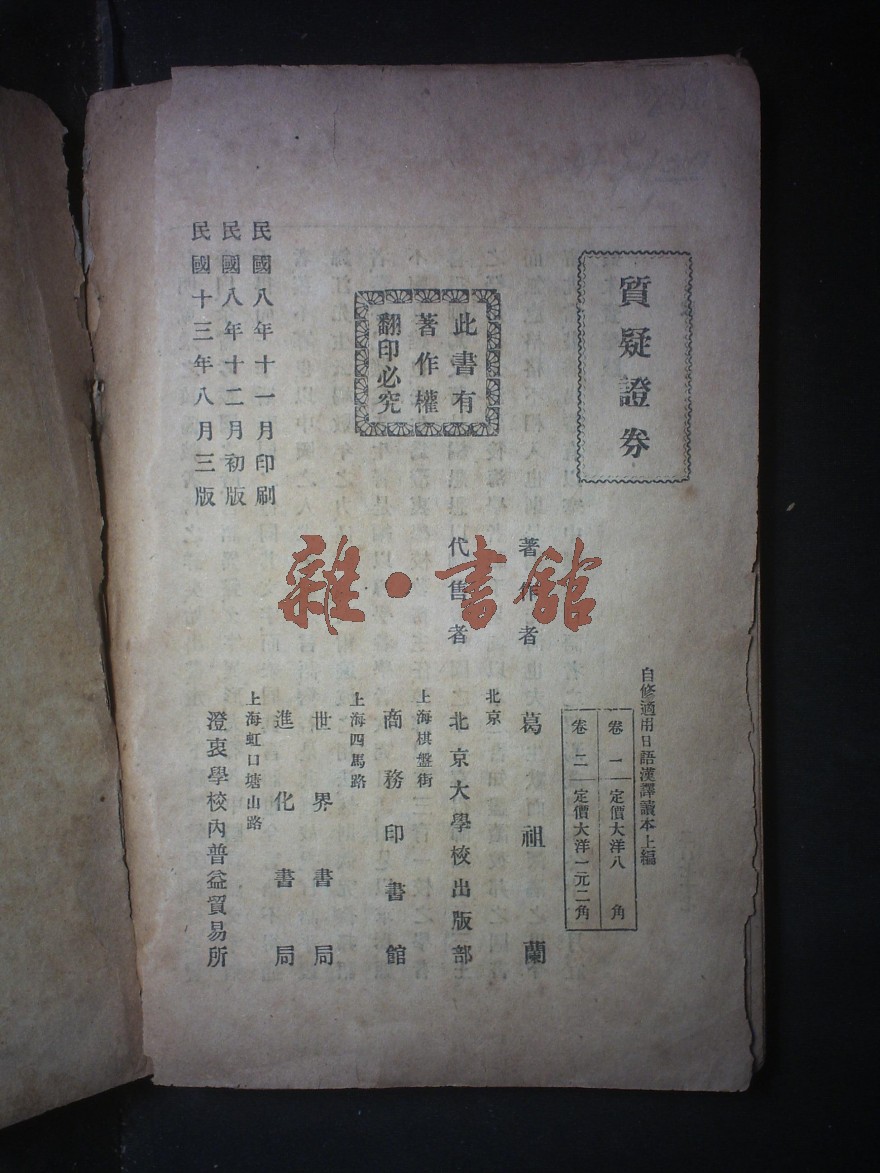 質疑證券
自修適用日語漢譯讀本上編
卷一 定價大洋八角
卷二 定價大洋一元二角
此書有
著作權
翻印必究
民國八年十一月印刷
民國八年十二月初版
民國十三年八月三版
著作者 葛祖蘭
代售者
北京
北京大學校出版部
上海棋盤街
商務印書館
上海四馬路
世界書局
進化書局
上海虹口塘山路
澄衷學校內普益貿易所
雜·書館